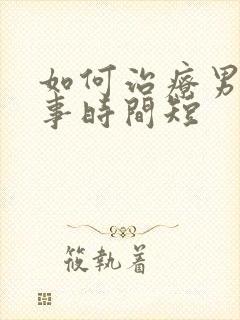 如何治療男
事時間短
筱執着